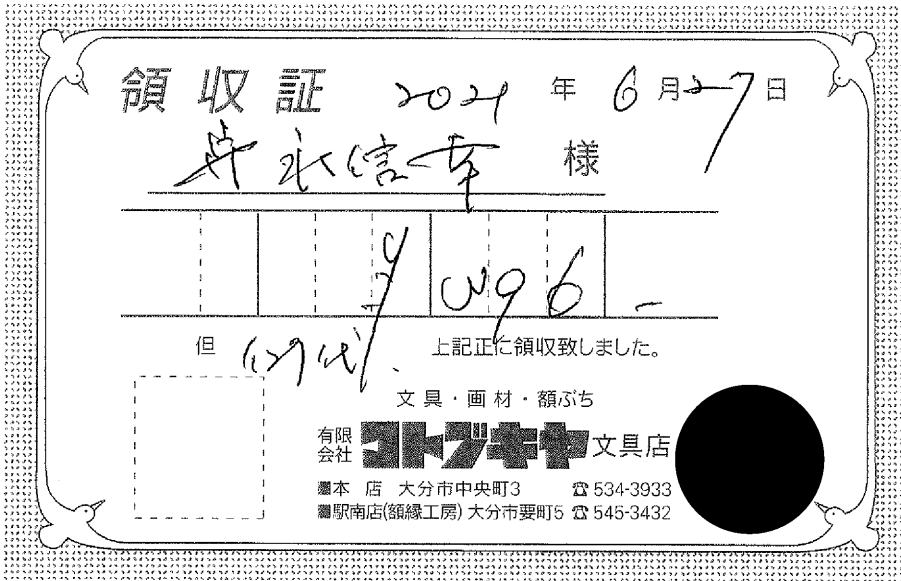 領収証 2021年6月27日
永信幸 様
¥396-
但 代 上記正に領収致しました。
文具・画材・額ぶち
有限会社 コトブキヤ 文具店
■本 店 大分市中央町3 ☎534-3933
■駅南店(額縁工房) 大分市要町5 ☎545-3432